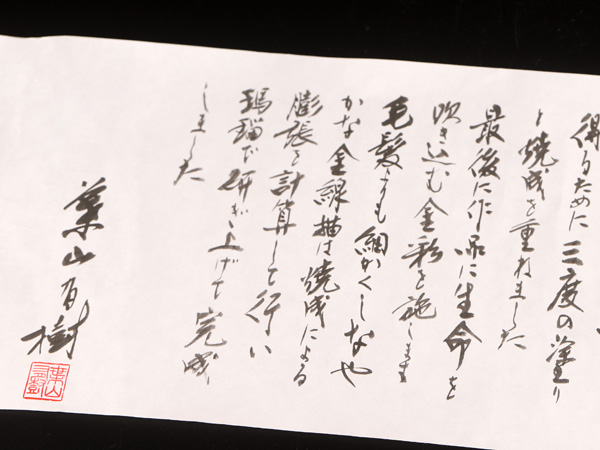 得るために三度の塗り
と焼成を重ねました
最後に作品に生命を
吹き込む金彩を施します
毛髪よりも細かくしなや
かな金線描は焼成による
膨張を計算して行い
瑪瑙で研ぎ上げて完成
しました
葉山有樹
葉山有樹